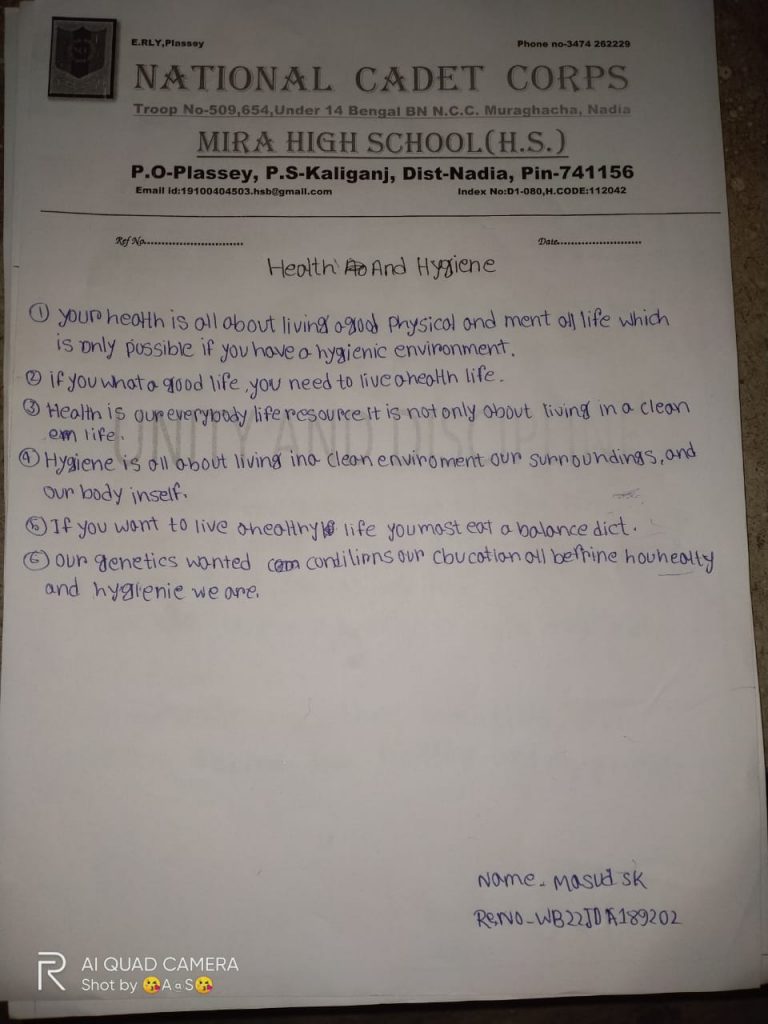 E.RLY,Plassey Phone no-3474 262229
NATIONAL CADET CORPS
Troop No-509,654,Under 14 Bengal BN N.C.C. Muraghacha, Nadia
MIRA HIGH SCHOOL(H.S.)
P.O-Plassey, P.S-Kaliganj, Dist-Nadia, Pin-741156
Email id:19100404503.hsb@gmail.com Index No:D1-080,H.CODE:112042
Ref No. Date
Health And Hygiene
① your health is all about living a good physical and ment all life which
is only possible if you have a hygienic environment.
② if you what a good life, you need to live a health life.
③ Health is our everybody life resource It is not only about living in a clean
life.
UNITY AND DISCIPLINE
④ Hygiene is all about living in a clean enviroment our surroundings, and
our body inself.
⑤ If you want to live a healthy life you most eat a balance dict.
⑥ our genetics wanted our all
and hygienie we are.
Name - Masud SK
Re.No - WB22JDA189202
AI QUAD CAMERA
Shot by 😘AaS😘